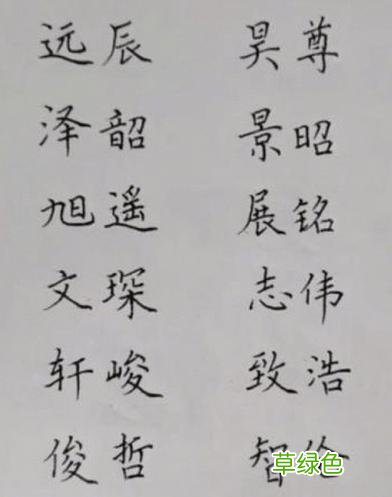 远辰 昊尊
泽韶 景昭
旭遥 展铭
文琛 志伟
轩峻 致浩
俊哲 智伦
草绿色